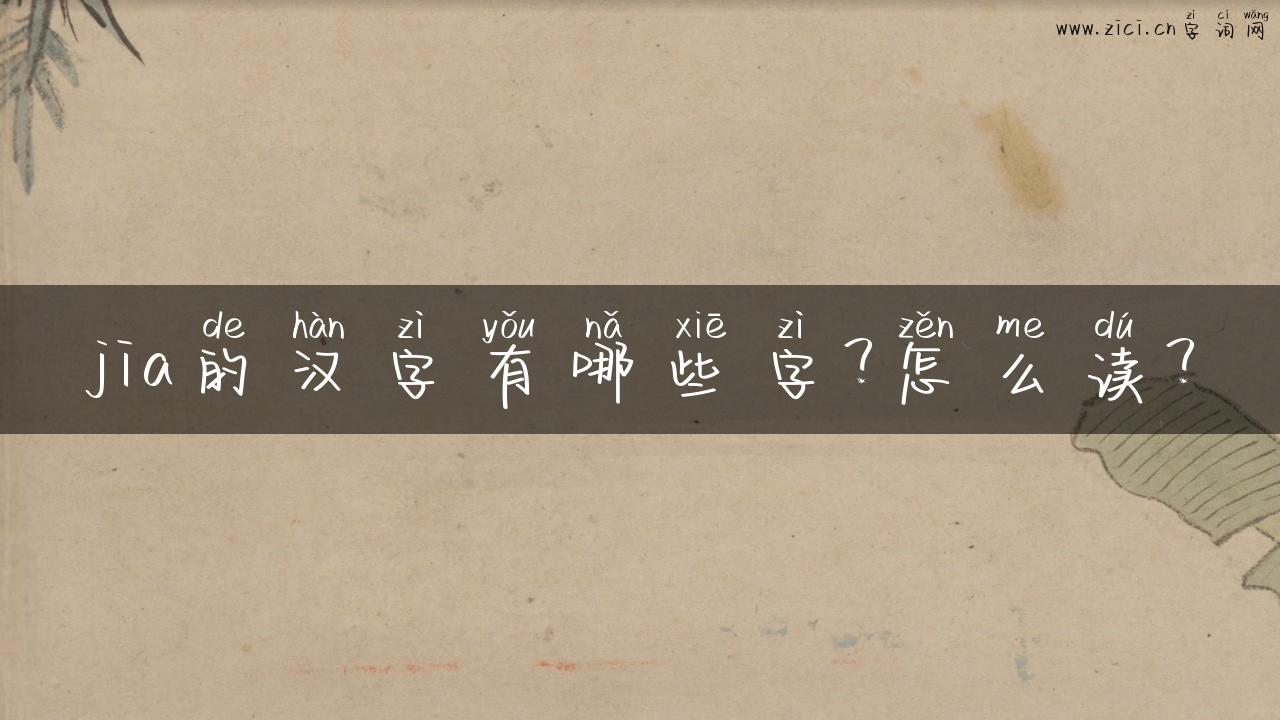 zì cí wǎng
www.zici.cn 字词网
de hàn zì yǒu nǎ xiē zì zěn me dú
jia的汉字有哪些字?怎么读?